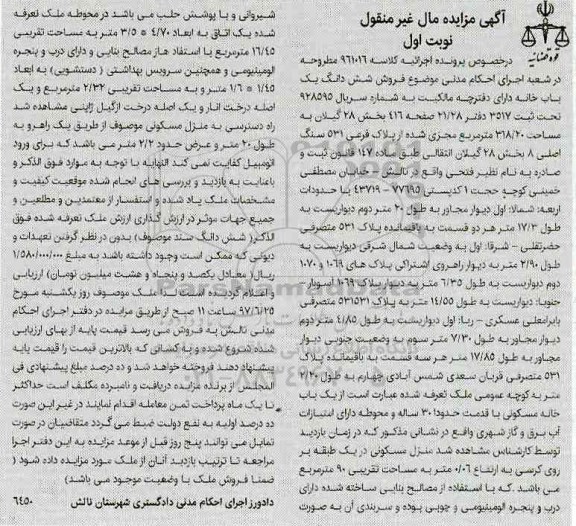 آگهی مزایده مال غیر منقول
نوبت اول
قوه قضائیه
درخصوص پرونده اجرائیه کلاسه ۹۶۱۰۱۶ مطروحه
در شعبه اجرای احکام مدنی موضوع فروش شش دانگ یک
باب خانه دارای دفترچه مالکیت به شماره سریال ۹۲۸۵۹۵
ثبت ۳۵۱۷ دفتر ۲۱/۲۸ صفحه ۴۱۶ بخش ۲۸ گیلان به
مساحت ۳۱۸/۲۰ مترمربع مجزی شده از پلاک فرعی ۵۳۱ سنگ
اصلی ۸ بخش ۲۸ گیلان انتقالی طبق ماده ۱۴۷ قانون ثبت و
صادره به نام نظیر فتحی واقع در تالش - خیابان مصطفی
خمینی کوچه حجت ۱ کدپستی ۷۷۶۹۵-۴۳۷۱۹ با حدودات
اربعه: شمالا: اول دیوار مجاور به طول ۲۰ متر دوم دیواریست به
طول ۱۷/۳ متر هر دو قسمت به باقیمانده پلاک ۵۳۱ متصرفی
حضرتقلی - شرقا: اول به وضعیت شمال شرقی دیواریست به
طول ۲/۹۰ متر به دیوار راهروی اشتراکی پلاک های ۱۰۶۹ و ۱۰۷۰
دوم دیواریست به طول ۶/۳۵ متر به دیوار پلاک ۱۰۶۹ سوار
جنوبا: دیواریست به طول ۱۴/۵۵ متر به پلاک ۵۳۱۵۳۱ متصرفی
بابرامعلی عسکری - ربا: اول دیواریست به طول ۴/۸۵ متر دوم
دیوار مجاور به طول ۷/۳۰ متر سوم به وضعیت جنوبی دیوار
مجاور به طول ۱۷/۸۵ متر هر سه قسمت به باقیمانده پلاک
۵۳۱ متصرفی قربان سعدی شمس آبادی چهارم به طول ۲/۲۰
متر به کوچه عمومی ملک تعرفه شده عبارت است از یک باب
خانه مسکونی با قدمت حدودا ۳۰ ساله و محوطه دارای امتیازات
آب برق و گاز شهری واقع در نشانی مذکور که در زمان بازدید
توسط کارشناس مشاهده شد منزل مسکونی در یک طبقه بر
روی کرسی به ارتفاع ۰/۰۶ متر به مساحت تقریبی ۹۰ مترمربع
می باشد. که با استفاده از مصالح بنایی ساخته شده دارای
درب و پنجره الومینیومی و چوبی بوده و سربندی آن به صورت
شیروانی و با پوشش حلب می باشد در محوطه ملک تعرفه
شده یک اتاق به ابعاد ۴/۷۰ * ۳/۵ متر به مساحت تقریبی
۱۶/۴۵ مترمربع با استفاد هاز مصالح بنایی و دارای درب و پنجره
الومینیومی و همچنین سرویس بهداشتی (دستشویی) به ابعاد
۱/۴۵ * ۱/۶ متر و به مساحت تقریبی ۲/۳۲ مترمربع و یک
اصله درخت انار و یک اصله درخت ازگیل ژاپنی مشاهده شد
راه دسترسی به منزل مسکونی موصوف از طریق یک راهرو به
طول ۲۰ متر و عرض حدود ۲/۲ متر می باشد که برای ورود
اتومبیل کفایت نمی کند النهایه با توجه به موارد فوق الذکر و
باعنایت به بازدید و بررسی های انجام شده موقعیت کیفیت و
مشخصات ملک یاد شده و استفسار از معتمدین و مطلعین و
جمیع جهات موثر در ارزش گذاری ارزش ملک تعرفه شده فوق
الذکر( شش دانگ سند موصوف) بدون در نظر گرفتن تعهدات و
دیونی که ممکن است وجود داشته باشد به مبلغ ۱/۵۸۰/۰۰۰/۰۰۰
ریال( معادل یکصد و پنجاه و هشت میلیون تومان) ارزیابی
و اعلام گردیده است لذا ملک موصوف روز یکشنبه مورخ
۹۷/۶/۲۵ ساعت ۱۱ صبح از طریق مزایده در دفتر اجرای احکام
مدنی تالش به فروش می رسد قیمت پایه از بهای ارزیابی
شده شروع شده و به کسانی که بالاترین قیمت را قیمت پایه
پیشنهاد دهند فروخته خواهد شد و ده درصد مبلغ پیشنهادی فی
المجلس از برنده مزایده دریافت و نامبرده مکلف است حداکثر
تا یک ماه پرداخت ثمن معامله اقدام نمایند در غیر این صورت
ده درصد اولیه به نفع دولت ضبط می گردد متقاضیان در صورت
تمایل می توانند پنج روز قبل از موعد مزایده به این دفتر اجرا
مراجعه تا ترتیب بازدید آنان از ملک مورد مزایده داده شود (
ضمنا فروش ملک با وضعیت موجود می باشد)
دادورز اجرای احکام مدنی دادگستری شهرستان تالش
۶۴۵۰
ParsNamadData